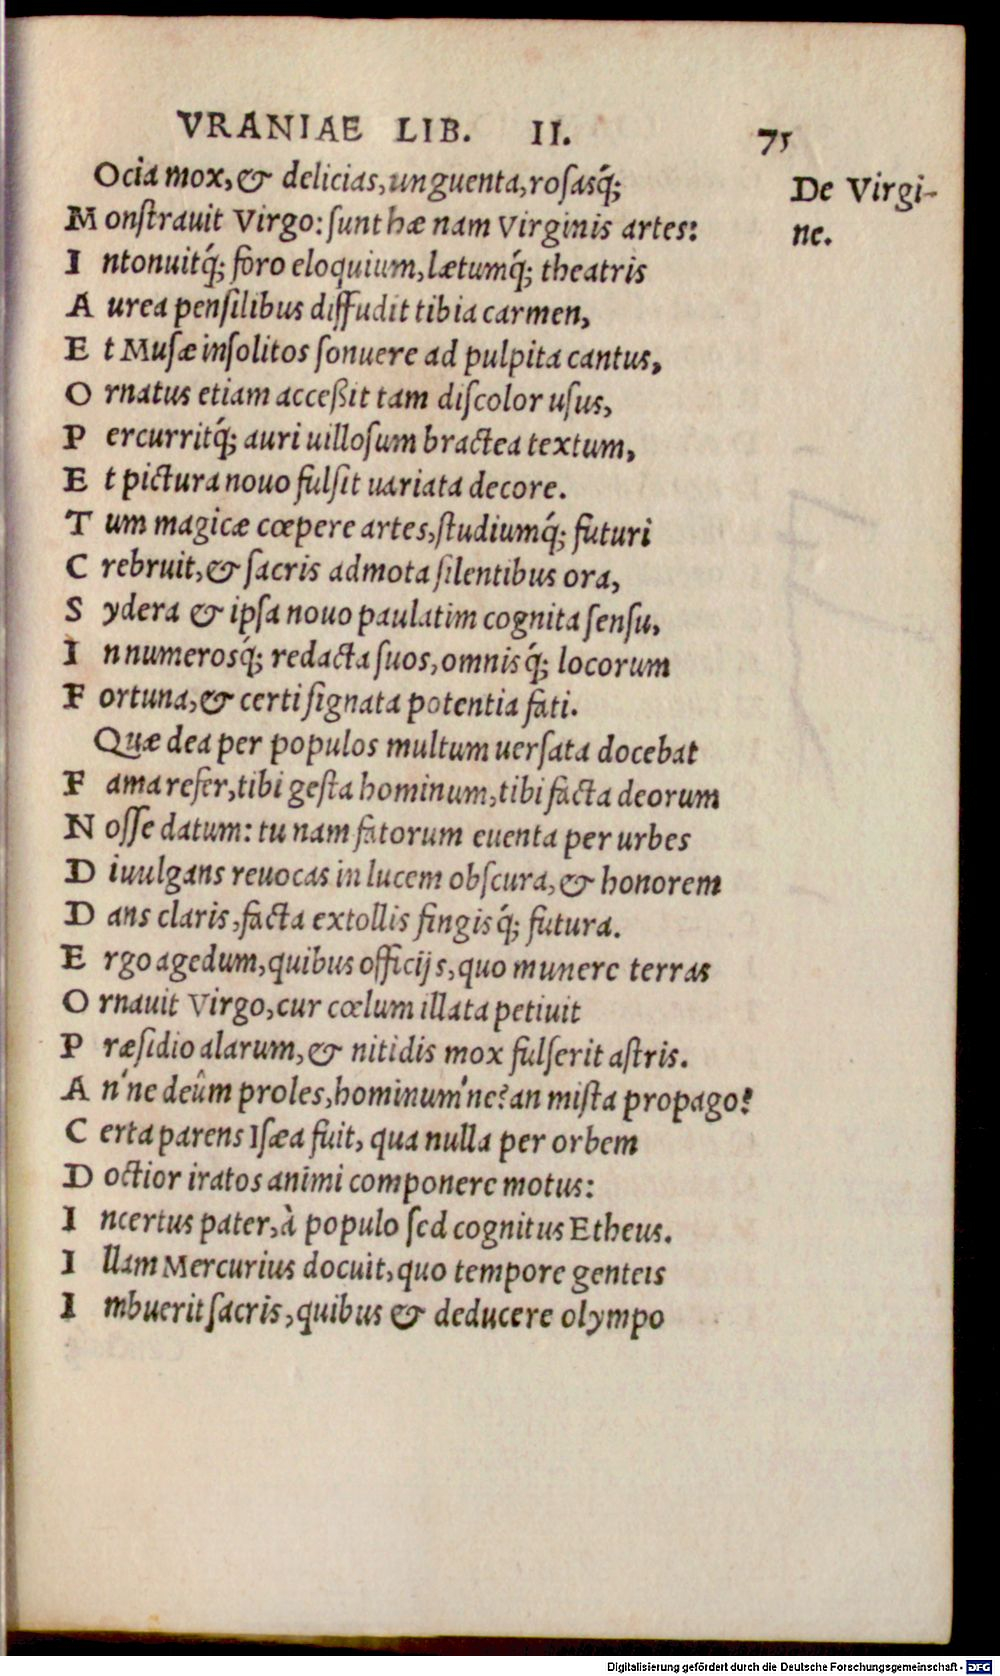 VRANIAE LIB. II. 75
Ocia mox, & delicias, unguenta, rosasq́;
De Virgi-
ne.
Monſtrauit Virgo: ſunt hæ nam Virginis artes:
Intonuitq́; foro eloquium, lætumq́; theatris
Aurea penſilibus diffudit tibia carmen,
Et Muſæ inſolitos ſonuere ad pulpita cantus,
Ornatus etiam acceßit tam diſcolor uſus,
Percurritq́; auri uilloſum bractea textum,
Et pictura nouo fulſit uariata decore.
Tum magicæ cœpere artes, ſtudiumq́; futuri
Crebruit, & ſacris admota ſilentibus ora,
Sydera & ipſa nouo paulatim cognita ſenſu,
Innumerosq́; redacta ſuos, omnisq́; locorum
Fortuna, & certi ſignata potentia fati.
Quæ dea per populos multum uerſata docebat
Fama refer, tibi geſta hominum, tibi facta deorum
Noſſe datum: tu nam fatorum euenta per urbes
Diuulgans reuocas in lucem obſcura, & honorem
Dans claris, facta extollis fingisq́; futura.
Ergo agedum, quibus officijs, quo munere terras
Ornauit Virgo, cur cœlum illata petiuit
Præſidio alarum, & nitidis mox fulſerit aſtris.
An'ne deûm proles, hominum'ne? an miſta propago?
Certa parens Iſæa fuit, qua nulla per orbem
Doctior iratos animi componere motus:
Incertus pater, à populo ſed cognitus Etheus.
Illam Mercurius docuit, quo tempore genteis
Imbuerit ſacris, quibus & deducere olympo
Digitalisierung gefördert durch die Deutsche Forschungsgemeinschaft - DFG